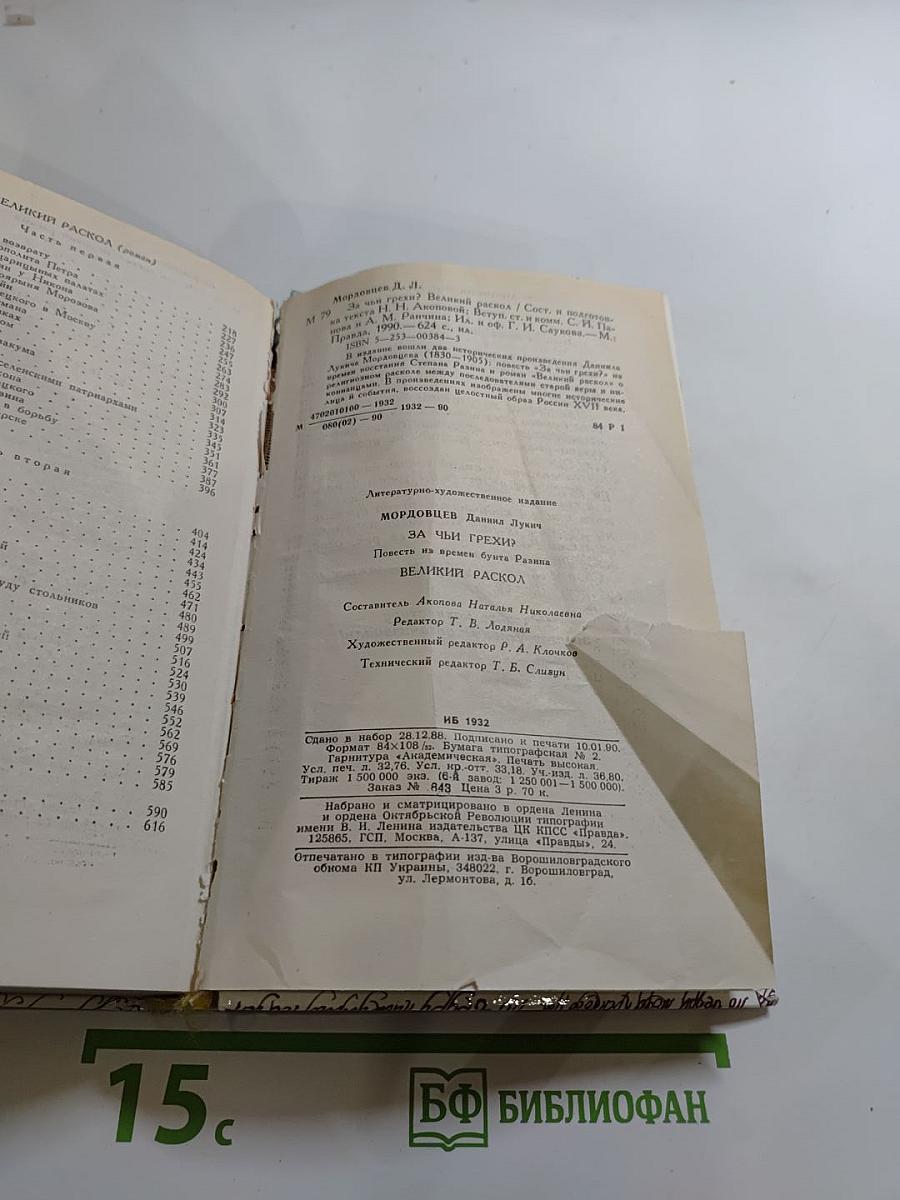 ВЕЛИКИЙ РАСКОЛ (роман)
Часть первая
возврату
Петра
царицыных палатах
у Никона
боярыня Морозова
в Москву
селенскими патриархами
в борьбу
вторая
уду стольников
218
227
236
247
255
263
274
283
292
300
307
314
323
335
345
351
361
377
387
396
404
414
424
434
443
455
462
471
480
489
499
507
516
524
530
539
546
552
562
569
576
579
585
590
616
Мордовцев Д. Л.
М 79 За чьи грехи? Великий раскол / Сост. и подготов-
ка текста Н. Н. Акоповой; Вступ. ст. и комм. С. И. Па-
нова и А. М. Ранчина; Ил. и оф. Г. И. Саукова.— М.:
Правда, 1990.— 624 с., ил.
ISBN 5—253—00384—3
В издание вошли два исторических произведения Даниила
Лукича Мордовцева (1830—1905): повесть «За чьи грехи?» из
времен восстания Степана Разина и роман «Великий раскол» о
религиозном расколе между последователями старой веры и ни-
конианцами. В произведениях изображены многие исторические
лица и события, воссоздан целостный образ России XVII века.
М 4702010100—1932
080(02)—90
1932—90
84 Р 1
Литературно-художественное издание
МОРДОВЦЕВ Даниил Лукич
ЗА ЧЬИ ГРЕХИ?
Повесть из времен бунта Разина
ВЕЛИКИЙ РАСКОЛ
Составитель Акопова Наталья Николаевна
Редактор Т. В. Лодяная
Художественный редактор Р. А. Клочков
Технический редактор Т. Б. Сливун
ИБ 1932
Сдано в набор 28.12.88. Подписано к печати 10.01.90.
Формат 84×108/32. Бумага типографская № 2.
Гарнитура «Академическая». Печать высокая.
Усл. печ. л. 32,76. Усл. кр.-отт. 33,18. Уч.-изд. л. 36,80.
Тираж 1 500 000 экз. (6-й завод: 1 250 001—1 500 000).
Заказ № 843 Цена 3 р. 70 к.
Набрано и сматрицировано в ордена Ленина
и ордена Октябрьской Революции типографии
имени В. И. Ленина издательства ЦК КПСС «Правда».
125865, ГСП, Москва, А-137, улица «Правды», 24.
Отпечатано в типографии изд-ва Ворошиловградского
обкома КП Украины, 348022, г. Ворошиловград,
ул. Лермонтова, д. 1б.
15 с
БФ БИБЛИОФАН